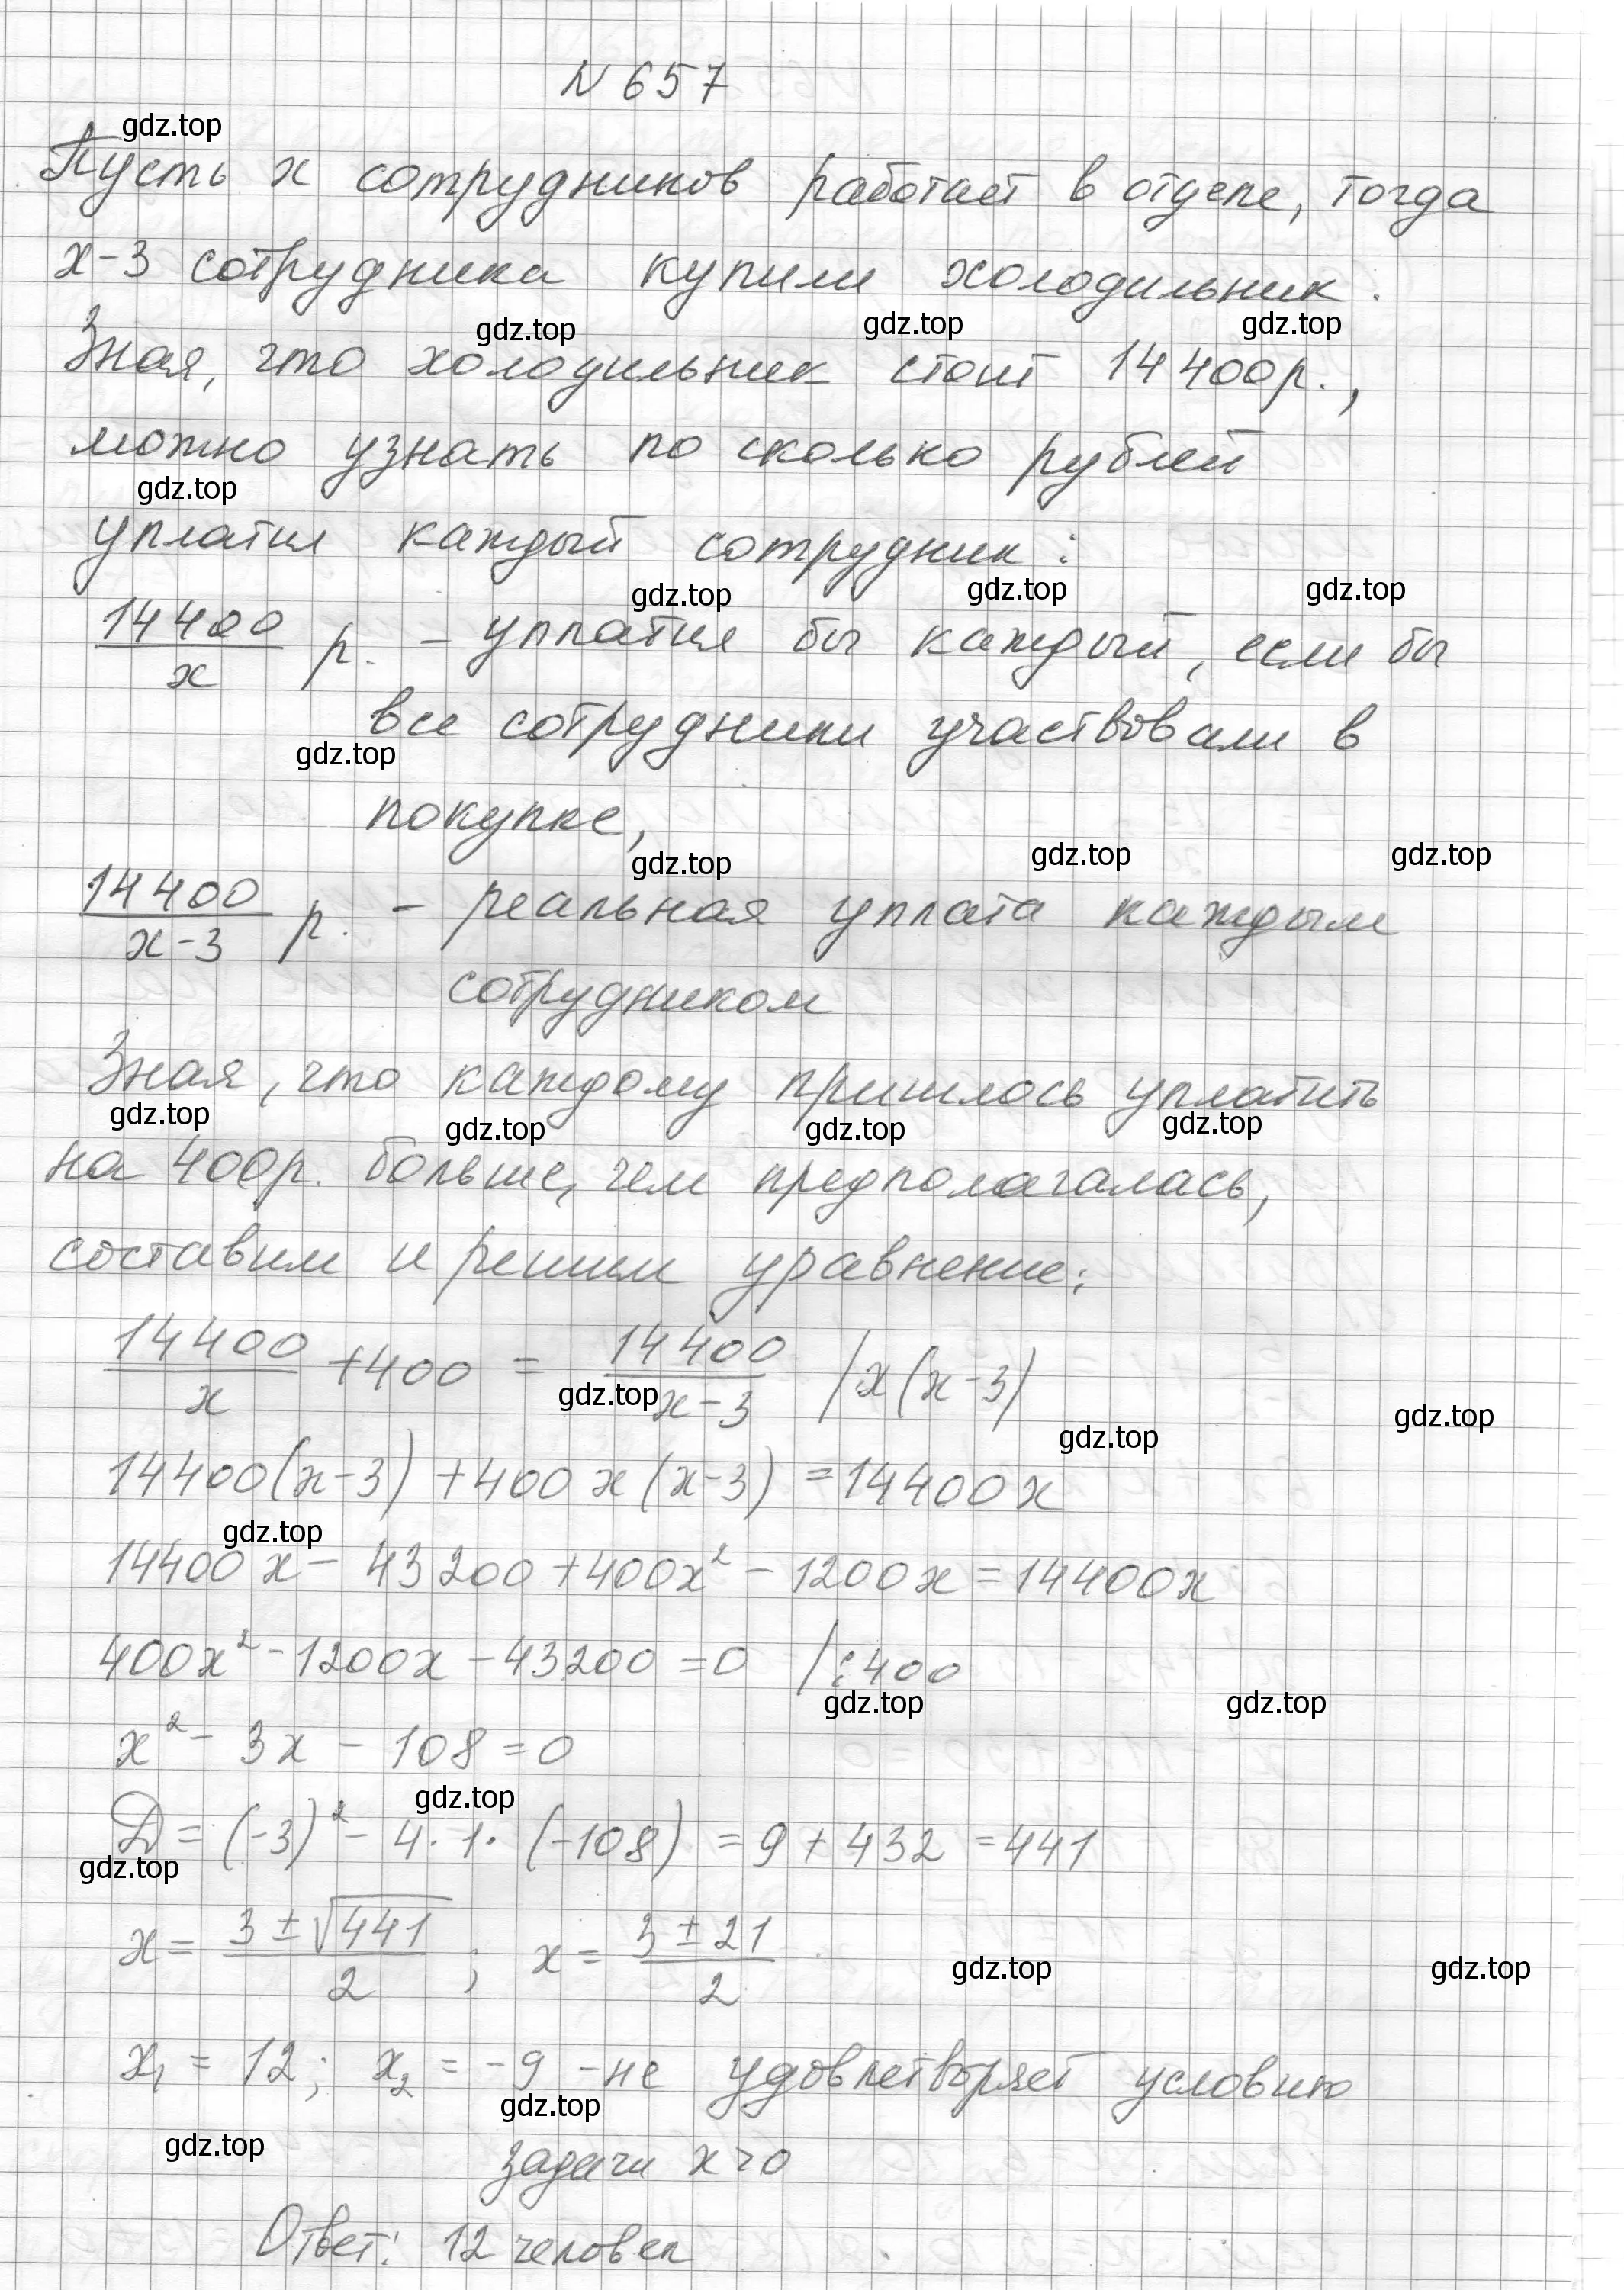 N 657
gdz.top
Пусть x сотрудников работает в отделе, тогда
x-3 сотрудника купили холодильник.
gdz.top gdz.top gdz.top
Зная, что холодильник стоит 14 400 р.,
можно узнать по сколько рублей
gdz.top
уплатил каждый сотрудник:
gdz.top gdz.top gdz.top
14 400/x р. - уплатил бы каждый, если бы
все сотрудники участвовали в
gdz.top
покупке,
gdz.top gdz.top gdz.top
14 400/(x-3) р. - реальная уплата каждым
сотрудником
Зная, что каждому пришлось уплатить
gdz.top gdz.top gdz.top gdz.top
на 400р. больше, чем предполагалась,
составим и решим уравнение:
14 400/x + 400 = 14 400/(x-3) /·x(x-3)
gdz.top gdz.top gdz.top
14400(x-3) + 400x(x-3) = 14400x
gdz.top
14400x - 43 200 + 400x² - 1200x = 14400x
400x² - 1200x - 43200 = 0 /:400
gdz.top gdz.top
x² - 3x - 108 = 0
gdz.top
D = (-3)² - 4·1·(-108) = 9 + 432 = 441
gdz.top
x = (3 ± √441)/2 ; x = (3 ± 21)/2
gdz.top gdz.top
x₁ = 12; x₂ = -9 - не удовлетворяет условию
gdz.top
gdz.top
задачи x>0
Ответ: 12 человек